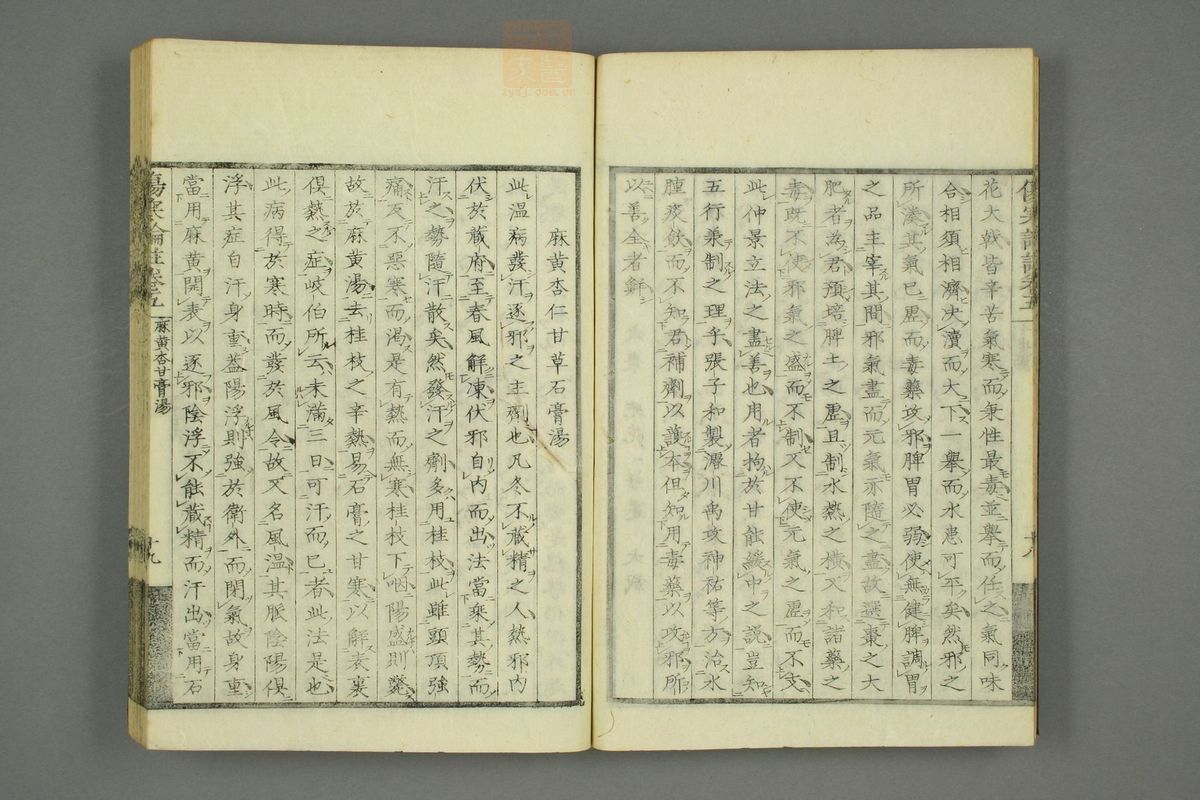 花大戟皆辛苦氣寒而秉性最毒並舉而任之氣同味
合相須相濟决瀆而大下一舉而水患可平矣然邪之
所湊其氣已虛而毒藥攻邪脾胃必弱使無健脾調胃
之品主宰其間邪氣盡而元氣亦隨之盡故選棗之大
肥者為君預培脾土之虛且制水熱之橫又和諸藥之
毒既不使邪氣之盛而不制又不使元氣之虛而不支
此仲景立法之盡善也用者拘於甘能緩中之說豈知
五行承制之理乎張子和製濬川禹攻神祐等方治水
腫痰飲而不知君補劑以護本但知用毒藥以攻邪所
以善全者鮮
麻黄杏仁甘草石膏湯
此温病發汗逐邪之主劑也凡冬不藏精之人熱邪内
伏於藏府至春風解凍伏邪自内而出法當乘其勢而
汗之勢隨汗散矣然發汗之劑多用桂枝此雖頭項強
痛反不惡寒而渴是有熱而無寒桂枝下咽陽盛則斃
故於麻黄湯去桂枝之辛熱易石膏之甘寒以解表裏
俱熱之症岐伯所云未滿三日可汗而已者此法是也
此病得於寒時而發於風令故又名風温其脈陰陽俱
浮其症自汗身重葢陽浮則強於衛外而閉氣故身重
當用麻黄開表以逐邪陰浮不能藏精而汗出當用石
傷寒論註卷五
麻黄杏甘膏湯
十九
zysj.com.cn